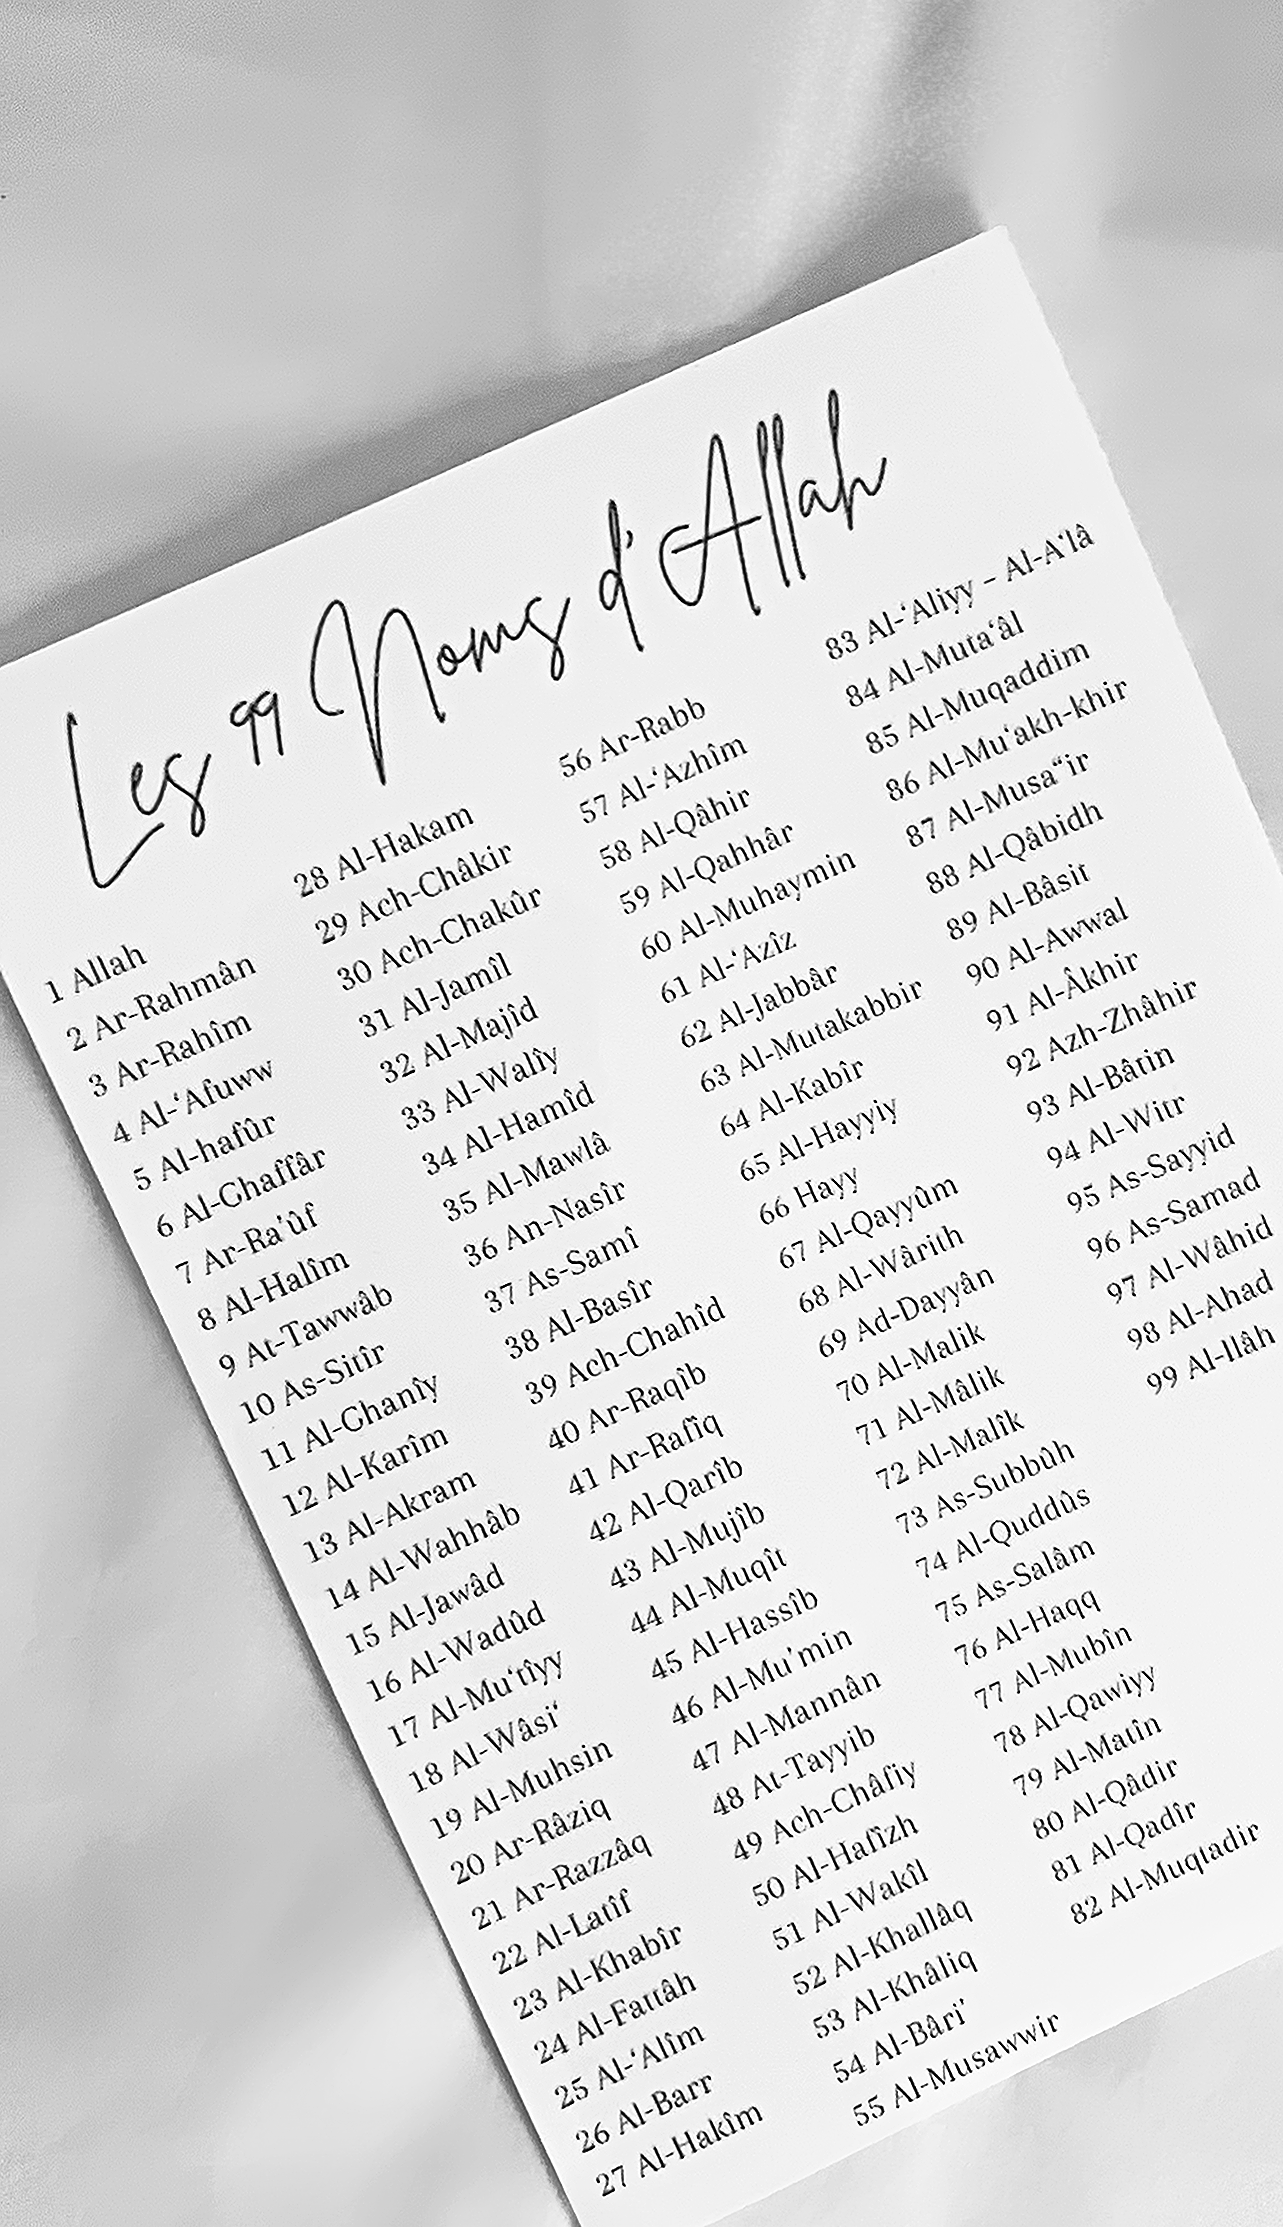 Les 99 Noms d'Allah
1 Allah
2 Ar-Rahmân
3 Ar-Rahîm
4 Al-‘Afuww
5 Al-hafûr
6 Al-Ghaffâr
7 Ar-Ra’ûf
8 Al-Halîm
9 At-Tawwâb
10 As-Sitîr
11 Al-Ghanîy
12 Al-Karîm
13 Al-Akram
14 Al-Wahhâb
15 Al-Jawâd
16 Al-Wadûd
17 Al-Mu‘tîyy
18 Al-Wâsi‘
19 Al-Muhsin
20 Ar-Râziq
21 Ar-Razzâq
22 Al-Latîf
23 Al-Khabîr
24 Al-Fattâh
25 Al-‘Alîm
26 Al-Barr
27 Al-Hakîm
28 Al-Hakam
29 Ach-Châkir
30 Ach-Chakûr
31 Al-Jamîl
32 Al-Majîd
33 Al-Walîy
34 Al-Hamîd
35 Al-Mawlâ
36 An-Nasîr
37 As-Samî
38 Al-Basîr
39 Ach-Chahîd
40 Ar-Raqîb
41 Ar-Rafîq
42 Al-Qarîb
43 Al-Mujîb
44 Al-Muqît
45 Al-Hassîb
46 Al-Mu’min
47 Al-Mannân
48 At-Tayyib
49 Ach-Châfiy
50 Al-Hafîzh
51 Al-Wakîl
52 Al-Khallâq
53 Al-Khâliq
54 Al-Bâri’
55 Al-Musawwir
56 Ar-Rabb
57 Al-‘Azhîm
58 Al-Qâhir
59 Al-Qahhâr
60 Al-Muhaymin
61 Al-‘Azîz
62 Al-Jabbâr
63 Al-Mutakabbir
64 Al-Kabîr
65 Al-Hayyiy
66 Hayy
67 Al-Qayyûm
68 Al-Wârith
69 Ad-Dayyân
70 Al-Malik
71 Al-Mâlik
72 Al-Malîk
73 As-Subbûh
74 Al-Quddûs
75 As-Salâm
76 Al-Haqq
77 Al-Mubîn
78 Al-Qawiyy
79 Al-Matîn
80 Al-Qâdir
81 Al-Qadîr
82 Al-Muqtadir
83 Al-‘Aliyy – Al-A‘lâ
84 Al-Muta‘âl
85 Al-Muqaddim
86 Al-Mu‘akh-khir
87 Al-Musa“ir
88 Al-Qâbidh
89 Al-Bâsit
90 Al-Awwal
91 Al-Âkhir
92 Azh-Zhâhir
93 Al-Bâtin
94 Al-Witr
95 As-Sayyid
96 As-Samad
97 Al-Wâhid
98 Al-Ahad
99 Al-Ilâh